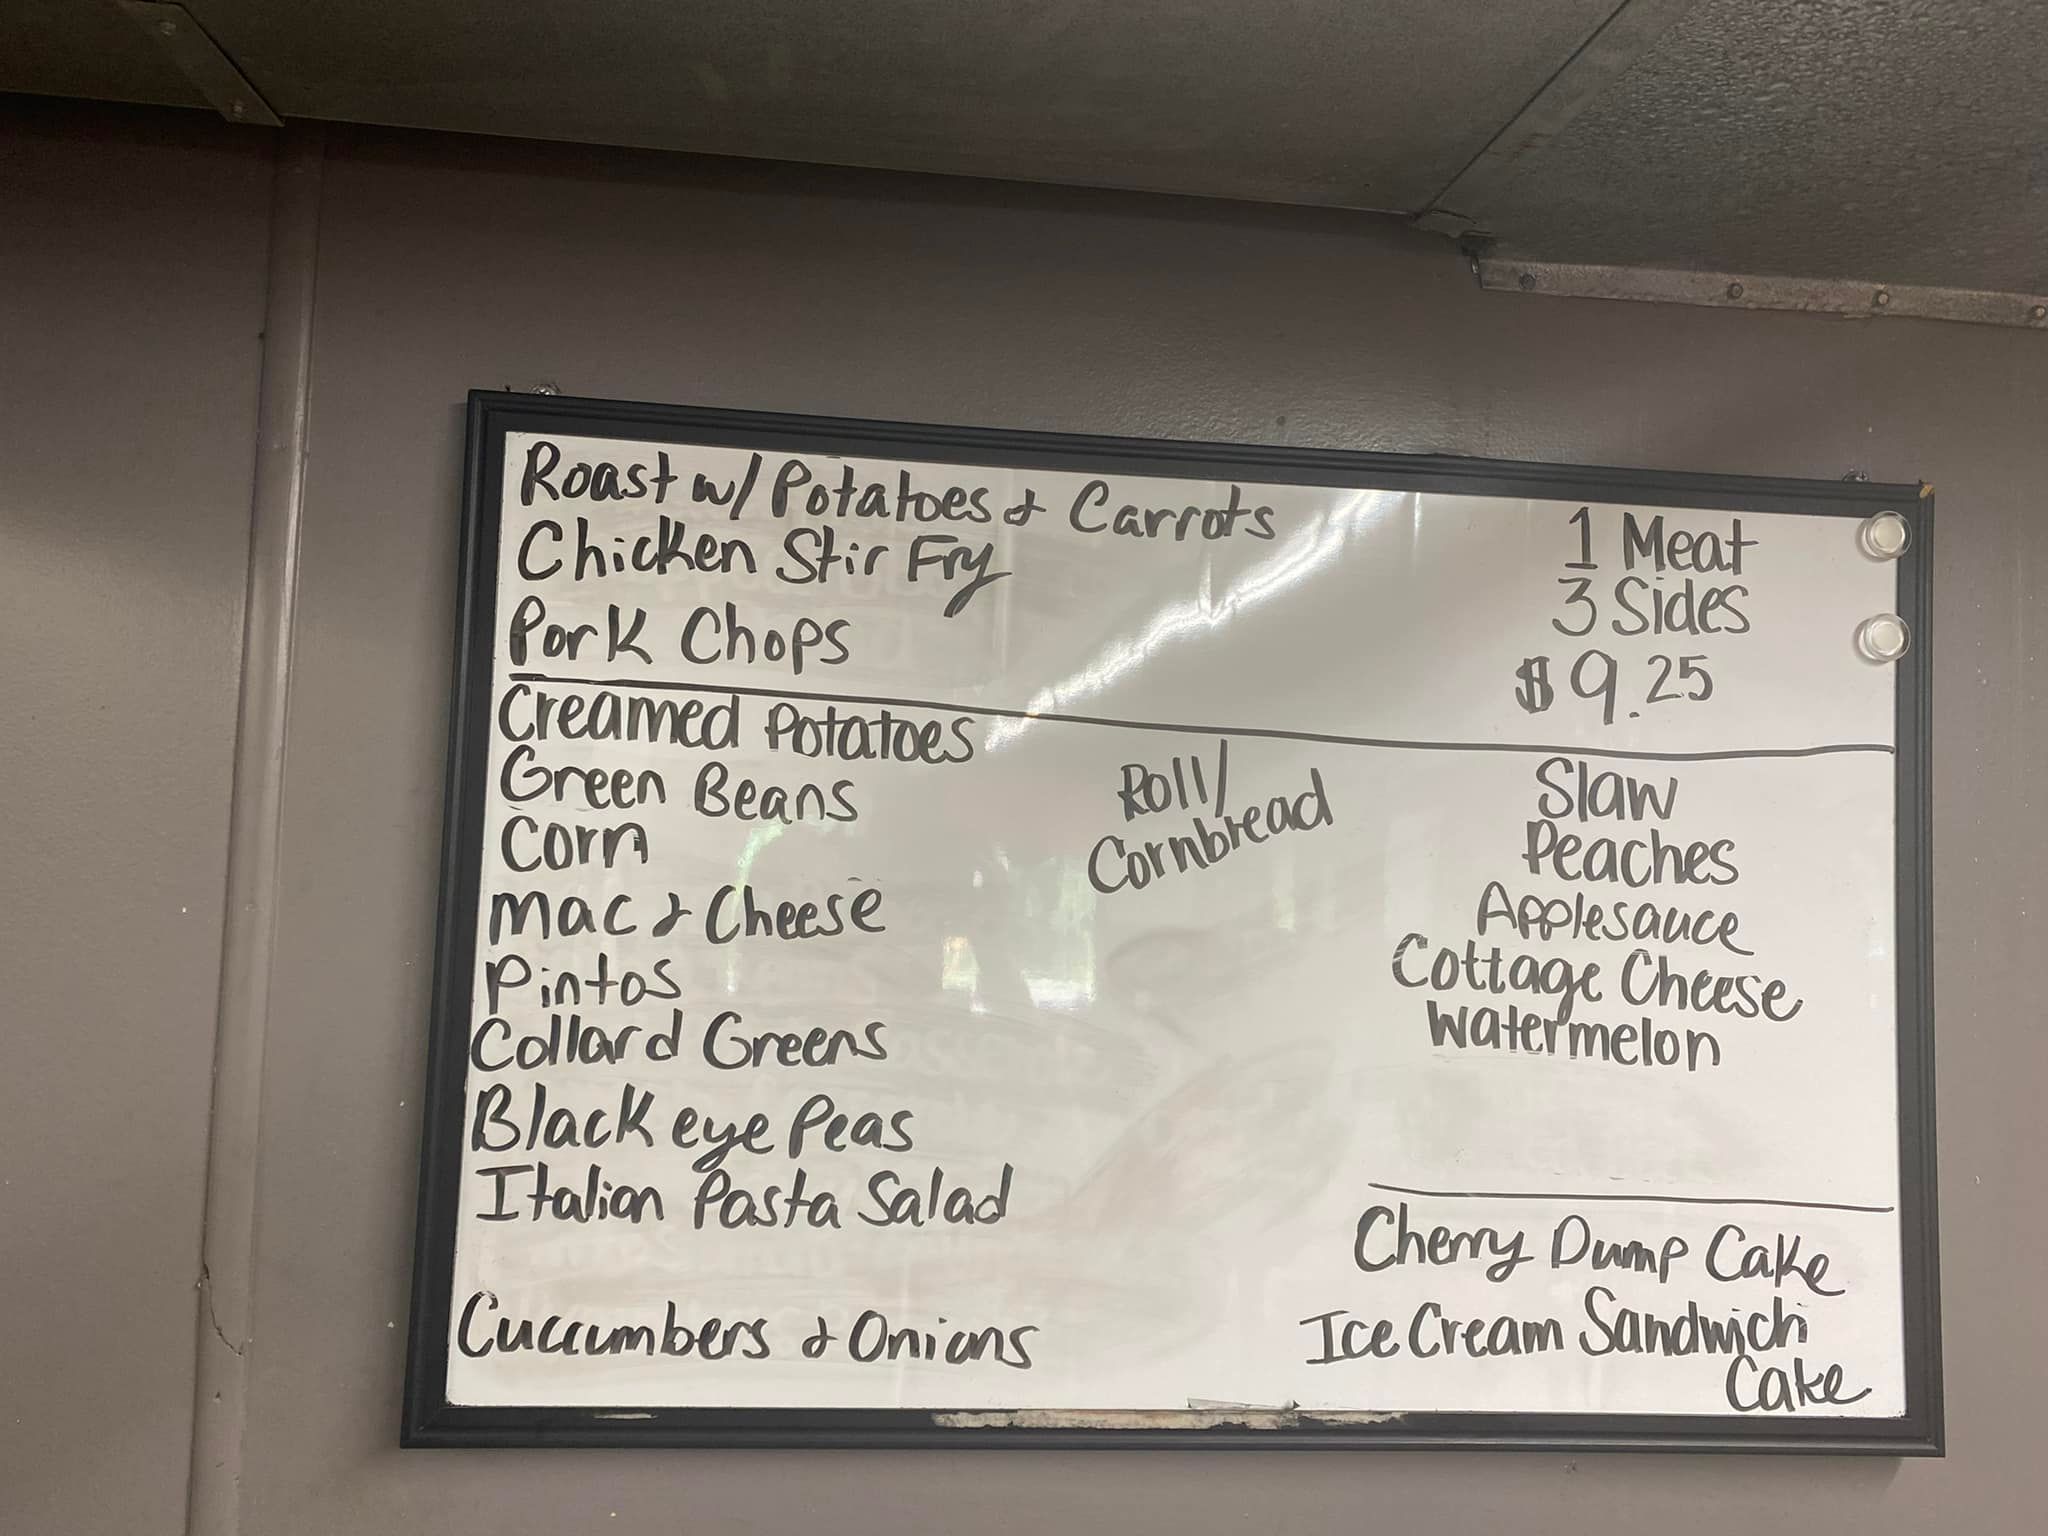 Roast w/ Potatoes & Carrots
Chicken Stir Fry
Pork Chops
1 Meat
3 Sides
$9.25
Creamed Potatoes
Green Beans
Corn
Mac & Cheese
Pintos
Collard Greens
Black eye Peas
Italian Pasta Salad
Cucumbers & Onions
Roll/
Cornbread
Slaw
Peaches
Applesauce
Cottage Cheese
Watermelon
Cherry Dump Cake
Ice Cream Sandwich
Cake